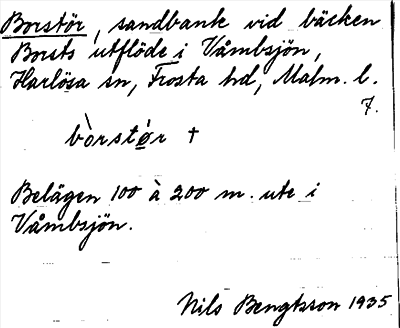 Borstör, sandbank vid bäcken
Borsts utflöde i Våmbsjön,
Harlösa sn, Frosta hd, Malm. l.
7.
bòrstø̀r +
Belägen 100 à 200 m. ute i
Våmbsjön.
Nils Bengtsson 1935